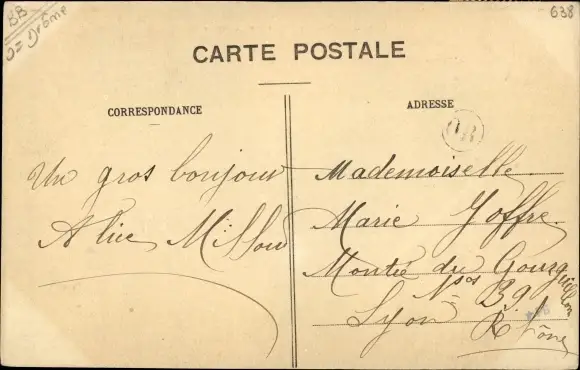 BB
D= Drôme
638
CARTE POSTALE
CORRESPONDANCE
ADRESSE
OR
Un gros bonjour
Alice
Mademoiselle
Marie Joffre
Montée du Gourguillon
Lyon
Rhône